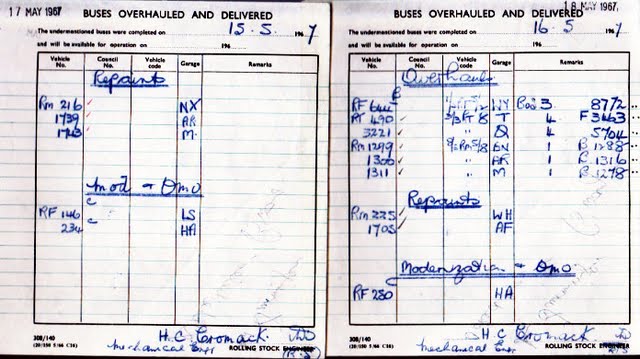 17 MAY 1967
BUSES OVERHAULED AND DELIVERED
The undermentioned buses were completed on 15.5. 1967
and will be available for operation on 196
Vehicle No. Council No. Vehicle code Garage Remarks
Repaints
RM 216 NX
1739 AR
1743 M
Mod & Omo
RF 146 c LS
234 c HA
308/140
H.C. Cromack
Mechanical Engr
ROLLING STOCK ENGINEER
18 MAY 1967
BUSES OVERHAULED AND DELIVERED
The undermentioned buses were completed on 16.5. 1967
and will be available for operation on 196
Vehicle No. Council No. Vehicle code Garage Remarks
Overhauls
RF WY Bod 3 8772
RT 490 3/3RT8 T 4 F3463
3221 " Q 4 5704
RM 1299 5/2RM5/8 EN 1 B.1288
1300 " AR 1 B.1316
1311 " M 1 B.1278
Repaints
RM 225 WH
1705 AF
Modernization & Omo.
RF 280 HA
308/140
H C Cromack
Mechanical Engr
ROLLING STOCK ENGINEER